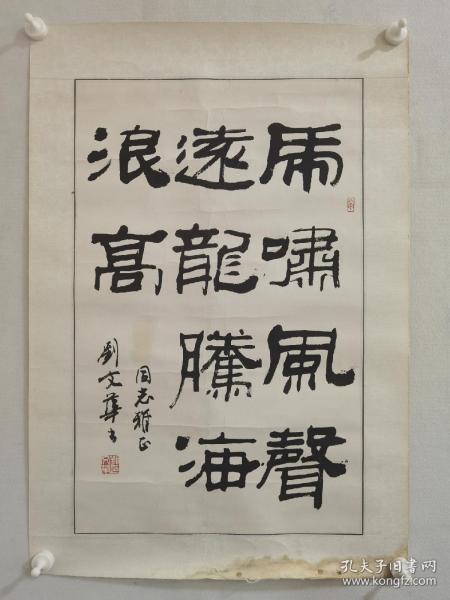 虎嘯風聲
遠龍騰海
浪高
同志雅正
劉文華书
孔夫子旧书网
www.kongfz.com